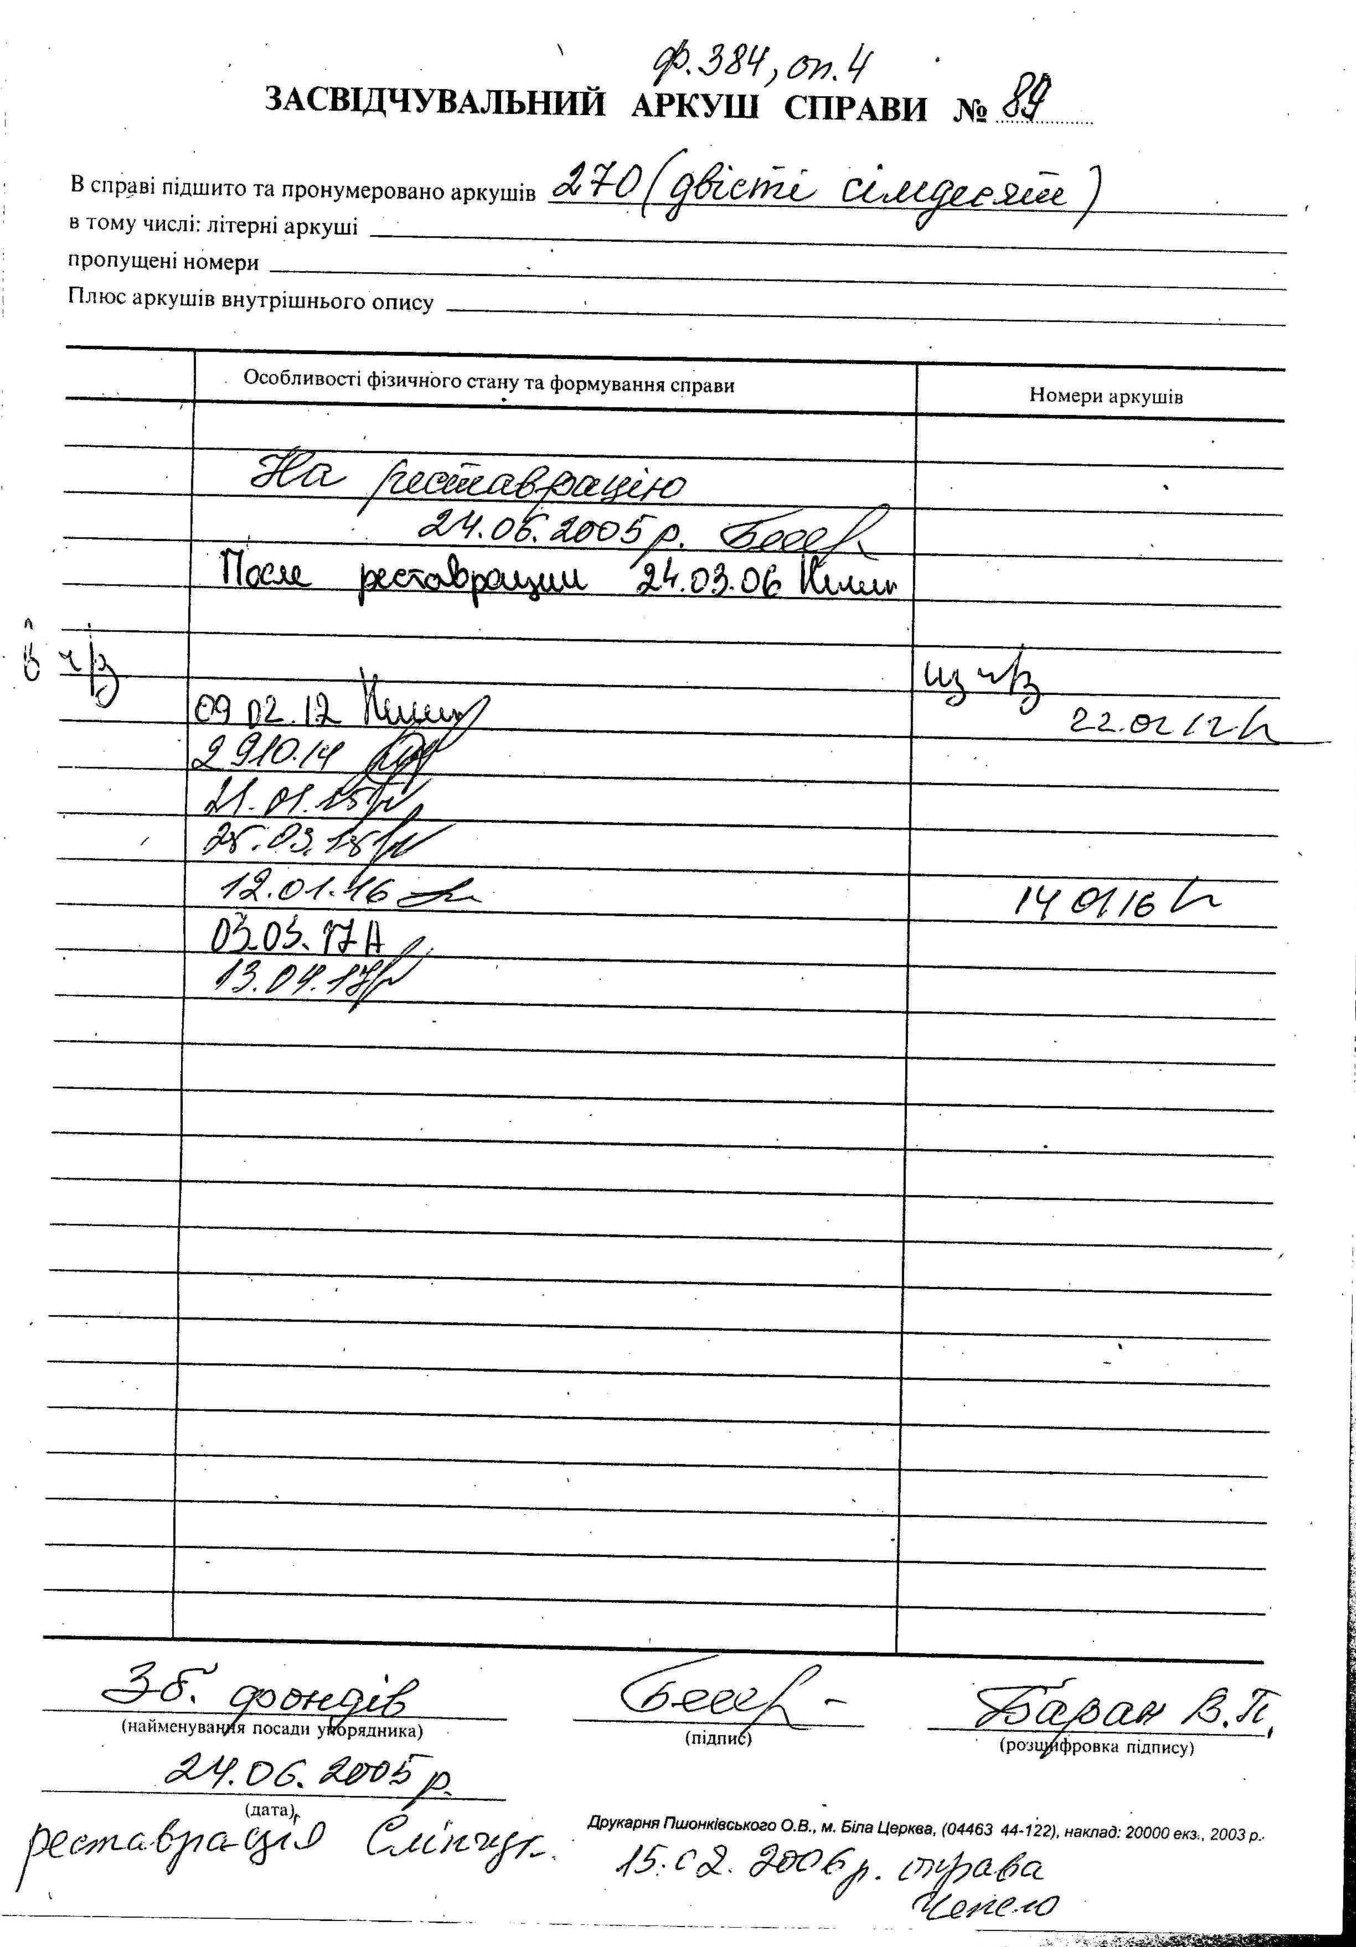 ф.384, оп.4
ЗАСВІДЧУВАЛЬНИЙ АРКУШ СПРАВИ № 89
В справі підшито та пронумеровано аркушів 270 (двісті сімдесят)
в тому числі: літерні аркуші
пропущені номери
Плюс аркушів внутрішнього опису
Особливості фізичного стану та формування справи Номери аркушів
На реставрацію
24.06.2005р.
После реставрации 24.03.06
в ч/з из ч/з
09 02.12 22.02 12
2910.14
21.01.15
25.03.15
12.01.16 14 01 16
03.03.17 А
13.04.17
Зб. фондів Баран В.П.
(найменування посади упорядника) (підпис) (розшифровка підпису)
24.06.2005р.
(дата)
Друкарня Пшонківського О.В., м. Біла Церква, (04463 44-122), наклад: 20000 екз., 2003 р.
реставрація Сліпчук.
15.02.2006р. справа